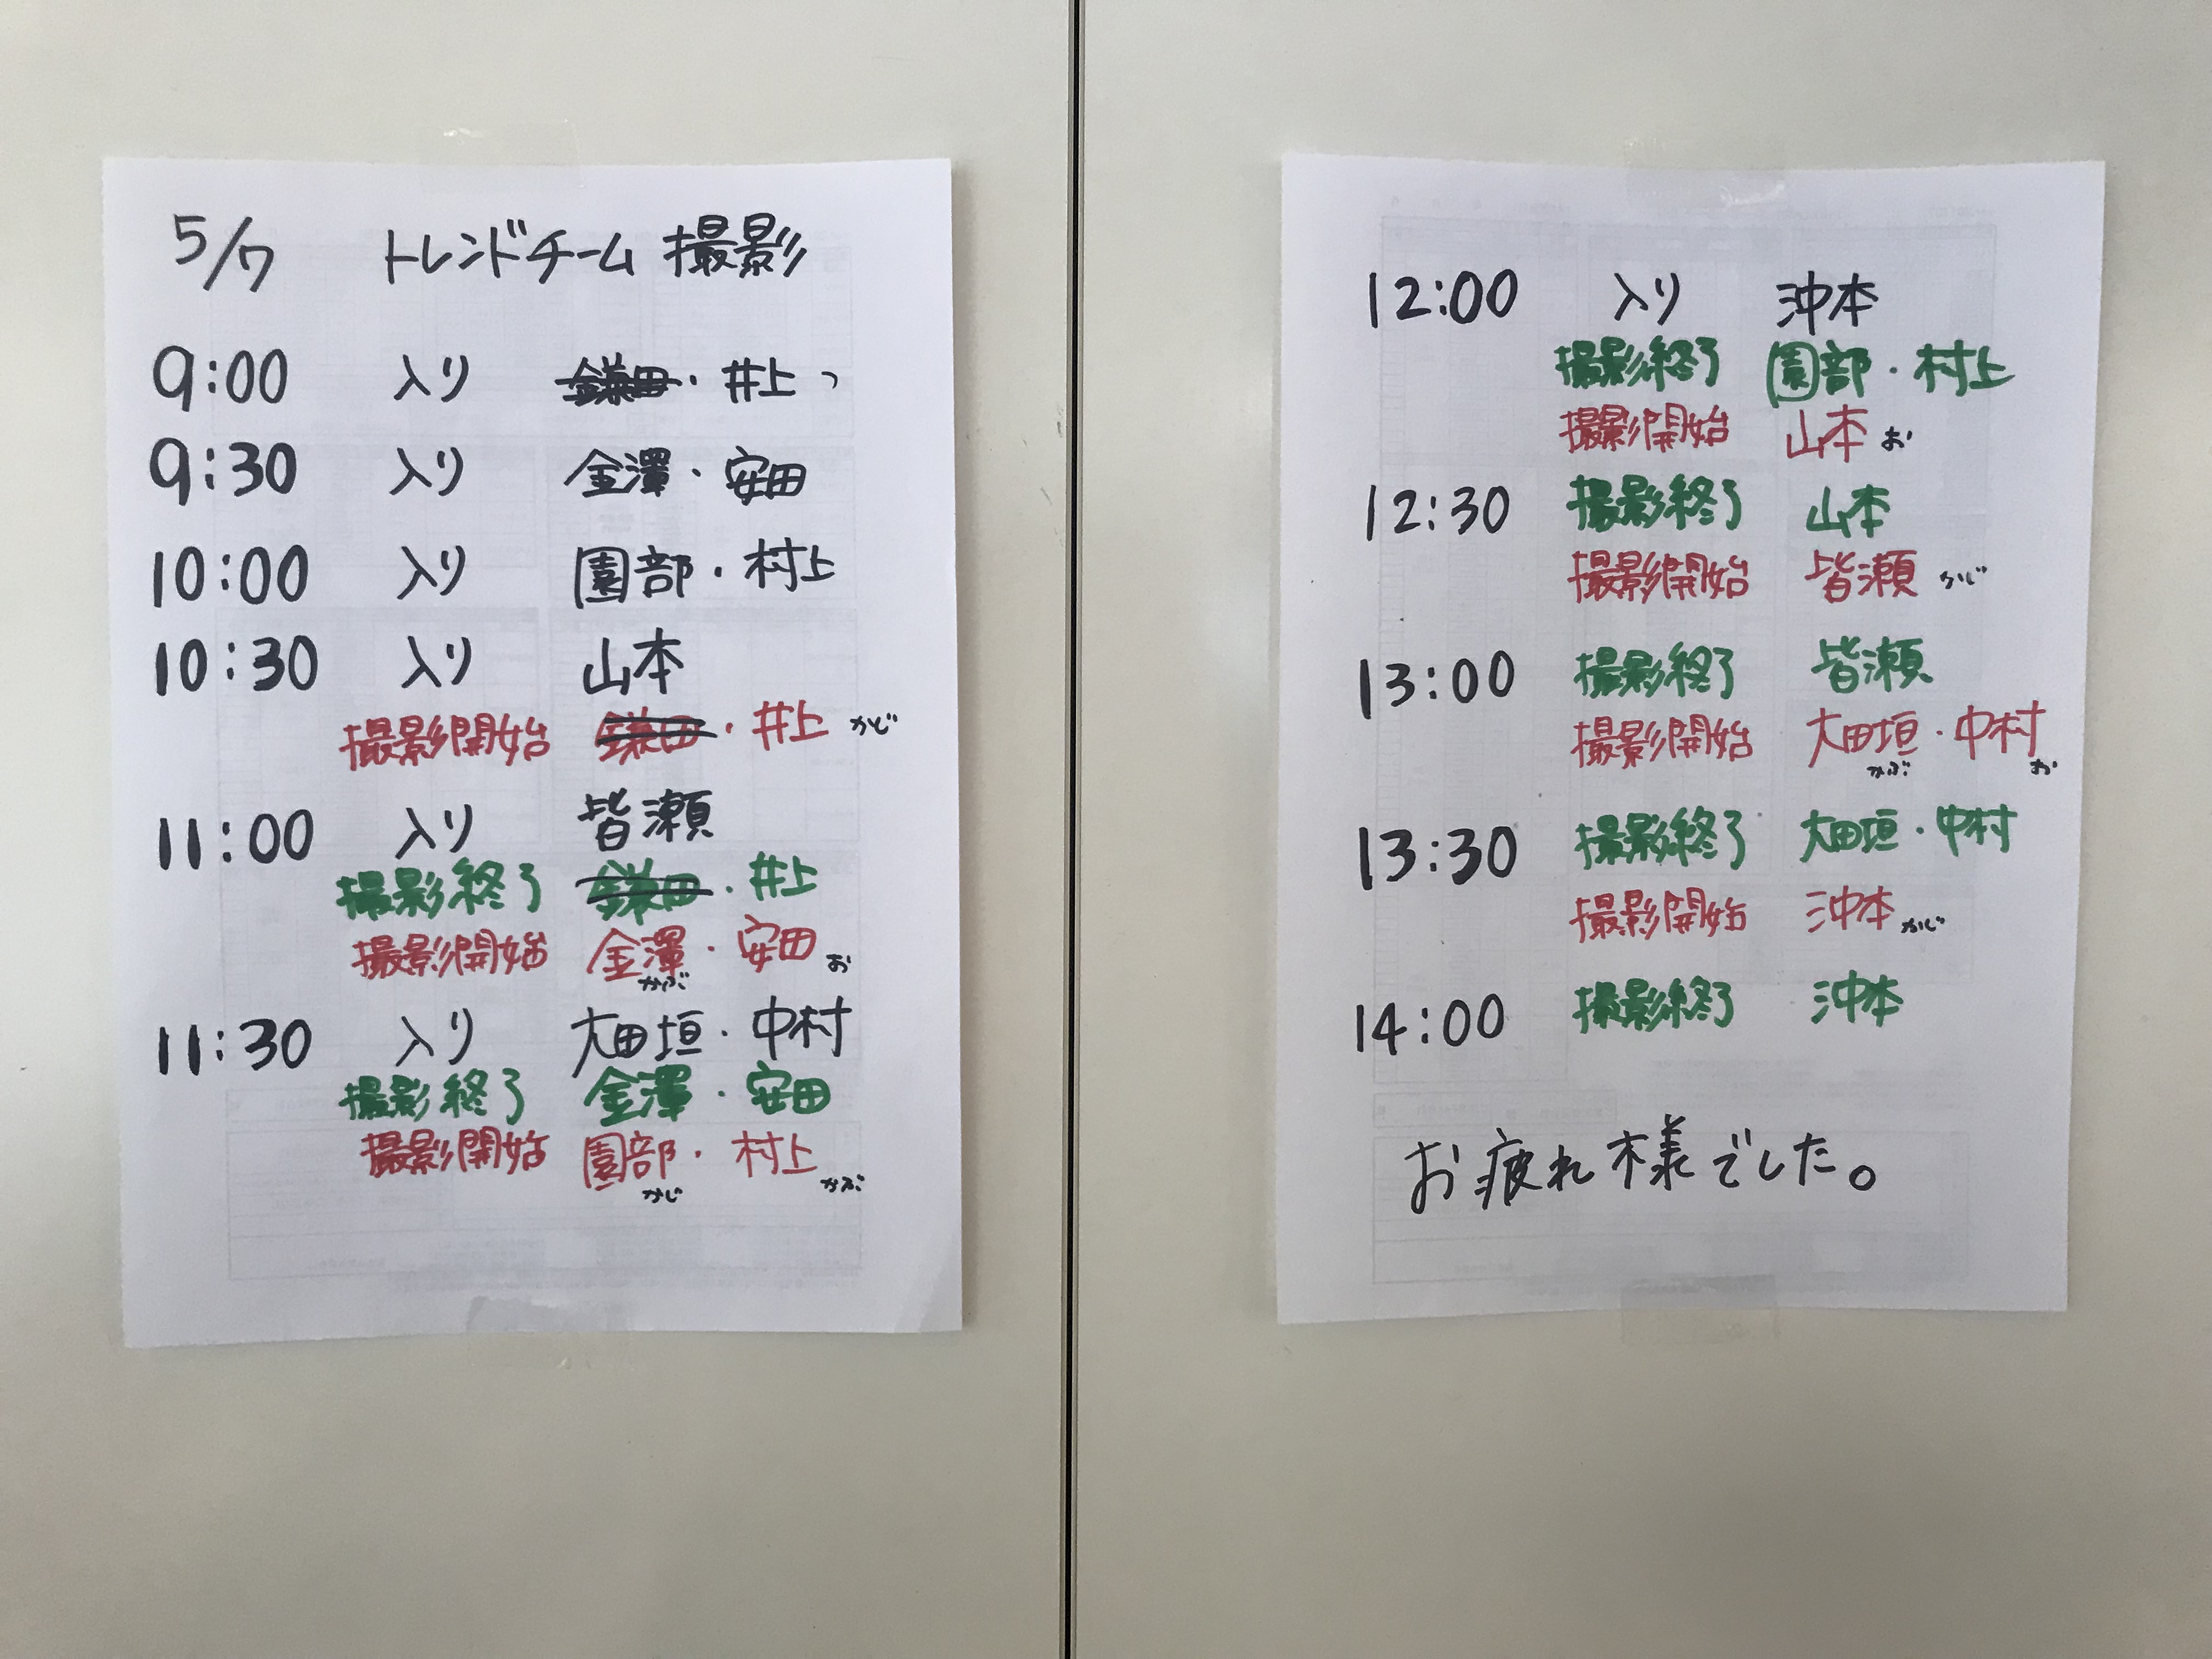 5/7 トレンドチーム 撮影
9:00 入り 鎌田・井上
9:30 入り 金澤・安田
10:00 入り 園部・村上
10:30 入り 山本
撮影開始 鎌田・井上 かじ
11:00 入り 皆瀬
撮影終了 鎌田・井上
撮影開始 金澤・安田 お
かぶ
11:30 入り 大田垣・中村
撮影終了 金澤・安田
撮影開始 園部・村上
かじ かぶ
12:00 入り 沖本
撮影終了 園部・村上
撮影開始 山本 お
12:30 撮影終了 山本
撮影開始 皆瀬 かじ
13:00 撮影終了 皆瀬
撮影開始 大田垣・中村
かぶ お
13:30 撮影終了 大田垣・中村
撮影開始 沖本 かじ
14:00 撮影終了 沖本
お疲れ様でした。